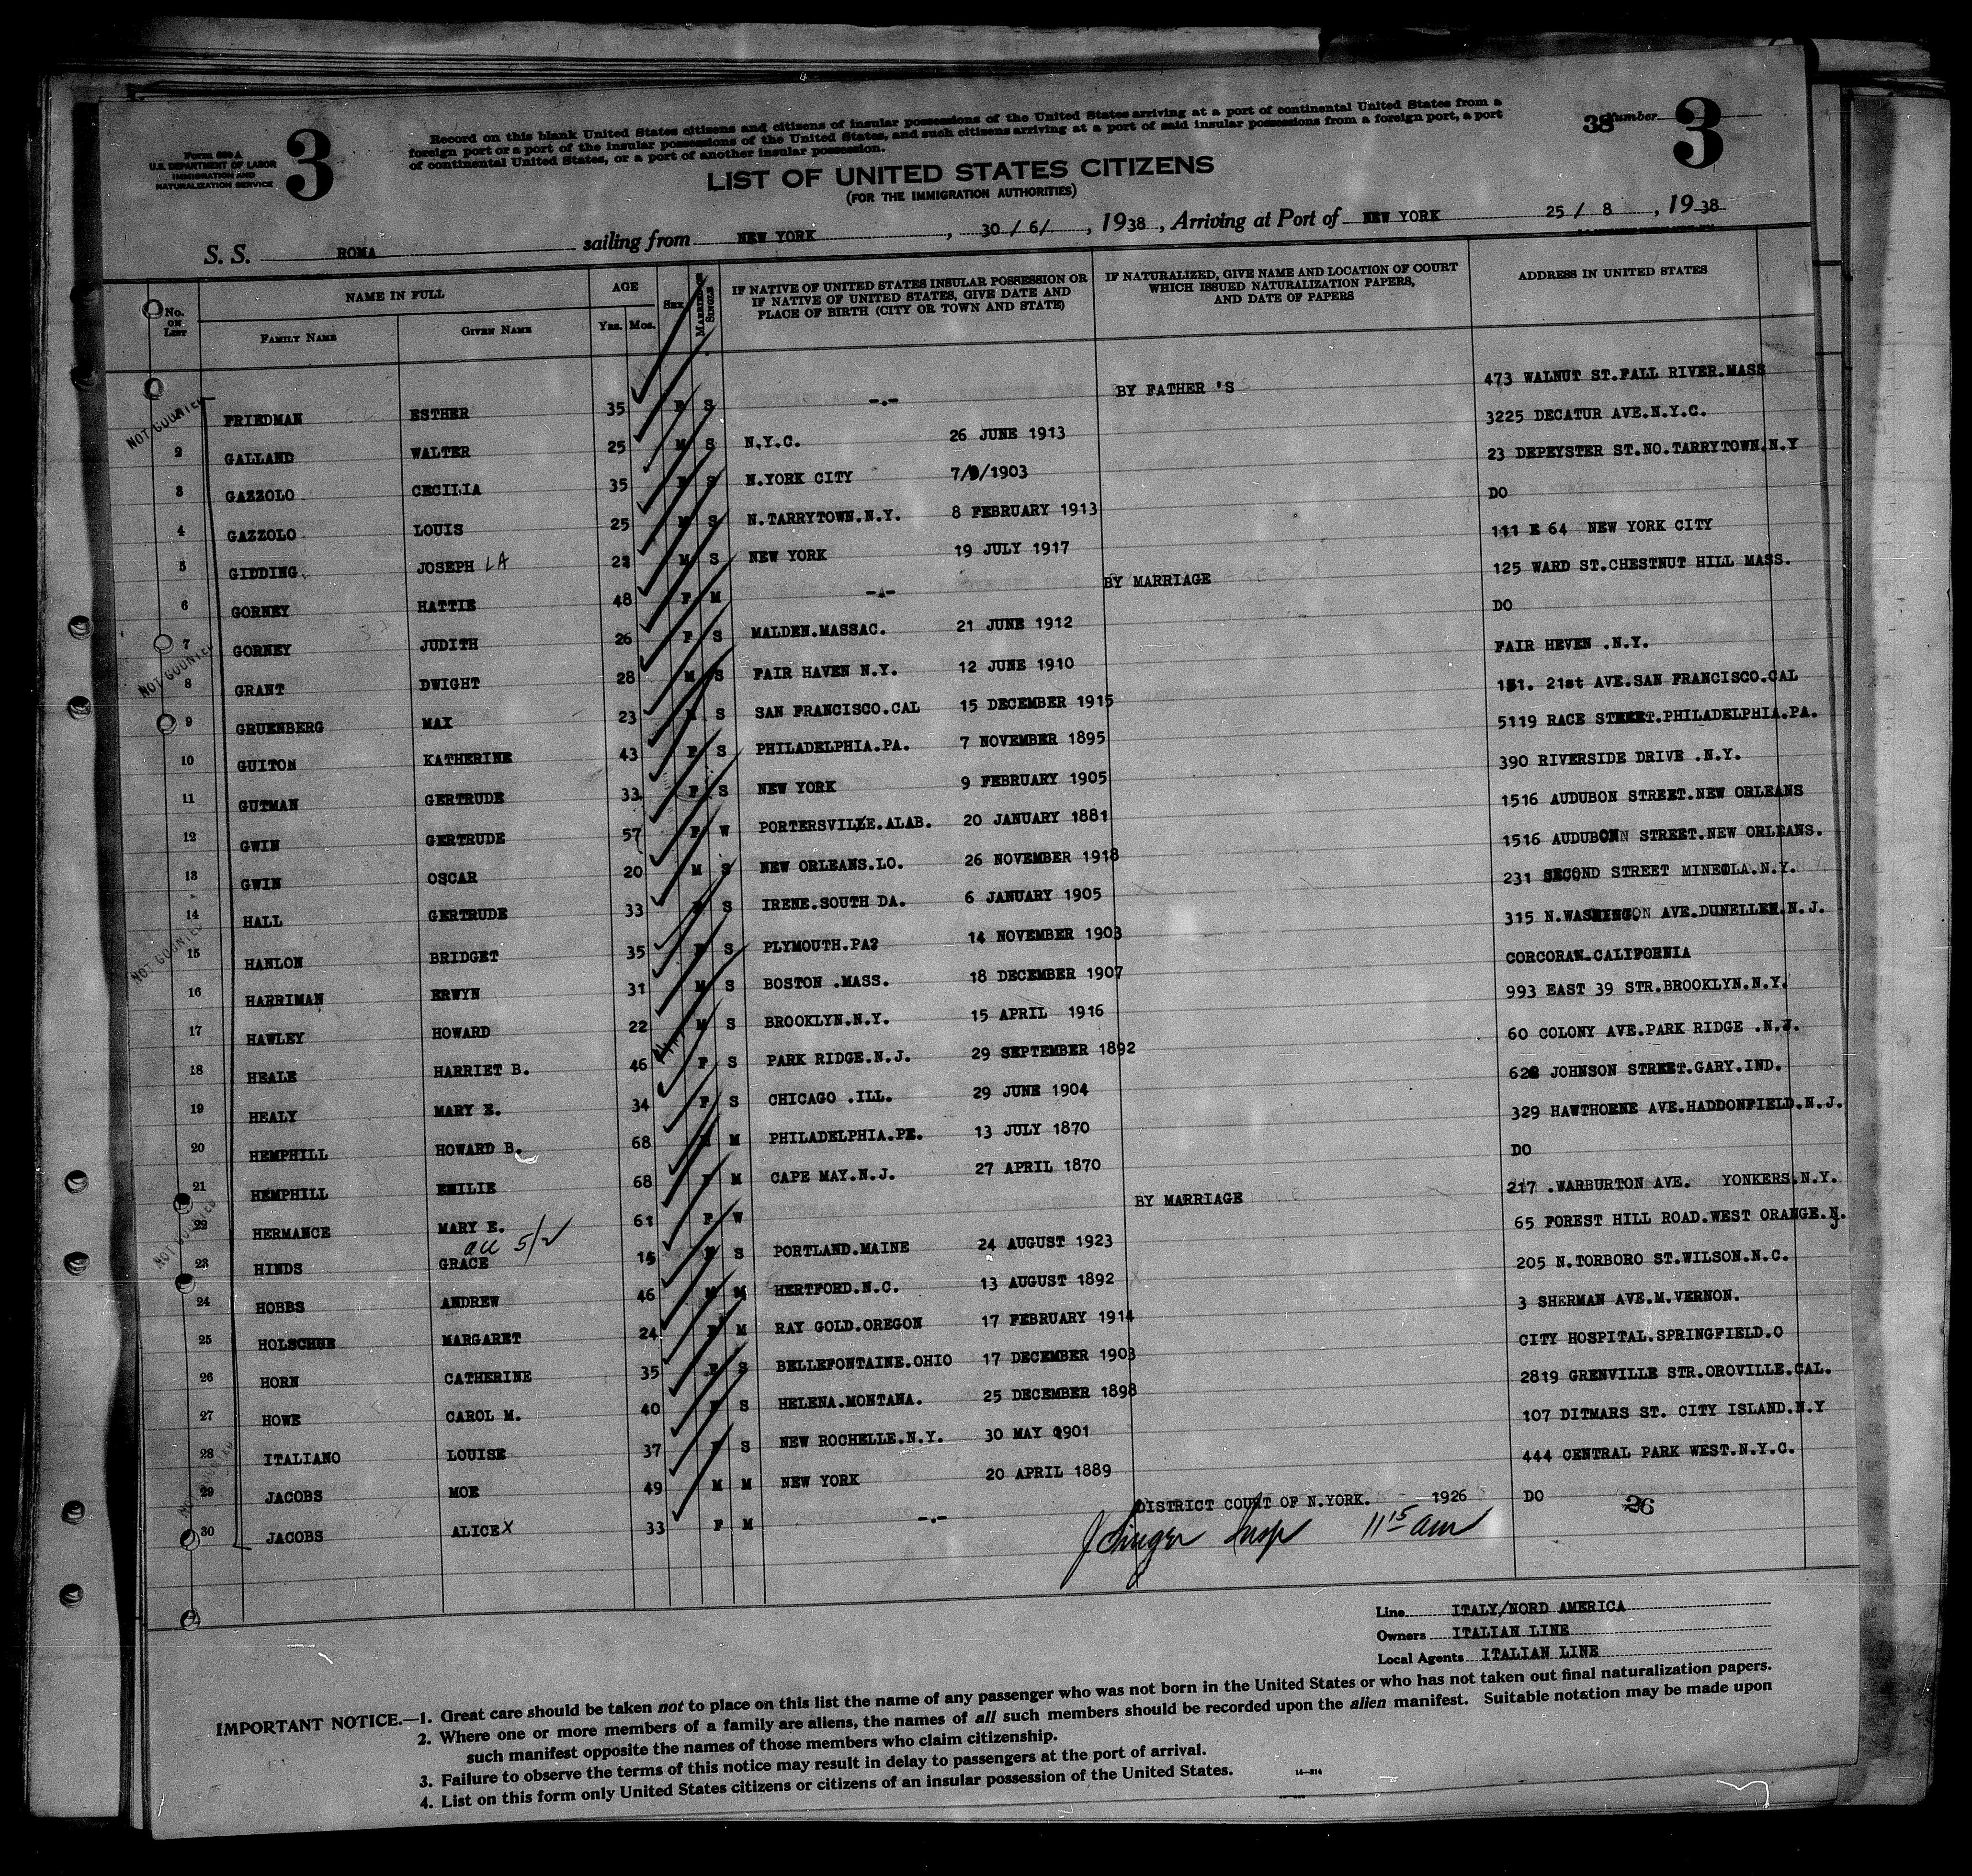 Form 630 A
U.S. DEPARTMENT OF LABOR
IMMIGRATION AND
NATURALIZATION SERVICE
3
Record on this blank United States citizens and citizens of insular possessions of the United States arriving at a port of continental United States from a
foreign port or a port of the insular possessions of the United States, and such citizens arriving at a port of said insular possessions from a foreign port, a port
of continental United States, or a port of another insular possession.
38 Number 3
LIST OF UNITED STATES CITIZENS
(FOR THE IMMIGRATION AUTHORITIES)
S. S. ROMA sailing from NEW YORK , 30 / 6/ , 1938 , Arriving at Port of NEW YORK 25 / 8 , 19 38
No. ON LIST NAME IN FULL FAMILY NAME GIVEN NAME AGE YRS. MOS. SEX MARRIED OR SINGLE IF NATIVE OF UNITED STATES INSULAR POSSESSION OR IF NATIVE OF UNITED STATES, GIVE DATE AND PLACE OF BIRTH (CITY OR TOWN AND STATE) IF NATURALIZED, GIVE NAME AND LOCATION OF COURT WHICH ISSUED NATURALIZATION PAPERS, AND DATE OF PAPERS ADDRESS IN UNITED STATES
NOT COUNTED FRIEDMAN ESTHER 35 F S -.- BY FATHER 'S 473 WALNUT ST.FALL RIVER.MASS
2 GALLAND WALTER 25 M S N.Y.C. 26 JUNE 1913 3225 DECATUR AVE.N.Y.C.
3 GAZZOLO CECILIA 35 F S N.YORK CITY 7/9/1903 23 DEPEYSTER ST.NO.TARRYTOWN.N.Y
4 GAZZOLO LOUIS 25 M S N.TARRYTOWN.N.Y. 8 FEBRUARY 1913 DO
5 GIDDING JOSEPH LA 21 M S NEW YORK 19 JULY 1917 111 E 64 NEW YORK CITY
6 GORNEY HATTIE 48 F M -.- BY MARRIAGE 125 WARD ST.CHESTNUT HILL MASS.
7 GORNEY JUDITH 26 F S MALDEN.MASSAC. 21 JUNE 1912 DO
NOT COUNTED 8 GRANT DWIGHT 28 M S FAIR HAVEN N.Y. 12 JUNE 1910 FAIR HEVEN .N.Y.
9 GRUENBERG MAX 23 M S SAN FRANCISCO.CAL 15 DECEMBER 1915 151. 21st AVE.SAN FRANCISCO.CAL
10 GUITON KATHERINE 43 F S PHILADELPHIA.PA. 7 NOVEMBER 1895 5119 RACE STREET.PHILADELPHIA.PA.
11 GUTMAN GERTRUDE 33 F S NEW YORK 9 FEBRUARY 1905 390 RIVERSIDE DRIVE .N.Y.
12 GWIN GERTRUDE 57 F W PORTERSVILLE.ALAB. 20 JANUARY 1881 1516 AUDUBON STREET.NEW ORLEANS
13 GWIN OSCAR 20 M S NEW ORLEANS.LO. 26 NOVEMBER 1918 1516 AUDUBONN STREET.NEW ORLEANS.
14 HALL GERTRUDE 33 F S IRENE.SOUTH DA. 6 JANUARY 1905 231 SECOND STREET MINEOLA.N.Y.
NOT COUNTED 15 HANLON BRIDGET 35 F S PLYMOUTH.PA? 14 NOVEMBER 1903 315 N.WASHINGON AVE.DUNELLEN.N.J.
16 HARRIMAN ERWYN 31 M S BOSTON .MASS. 18 DECEMBER 1907 CORCORAN.CALIFORNIA
17 HAWLEY HOWARD 22 M S BROOKLYN.N.Y. 15 APRIL 1916 993 EAST 39 STR.BROOKLYN.N.Y.
18 HEALE HARRIET B. 46 F S PARK RIDGE.N.J. 29 SEPTEMBER 1892 60 COLONY AVE.PARK RIDGE .N.J.
19 HEALY MARY E. 34 F S CHICAGO .ILL. 29 JUNE 1904 628 JOHNSON STREET.GARY.IND.
20 HEMPHILL HOWARD B. 68 M M PHILADELPHIA.PE. 13 JULY 1870 329 HAWTHORNE AVE.HADDONFIELD.N.J.
21 HEMPHILL EMILIE 68 F M CAPE MAY.N.J. 27 APRIL 1870 DO
NOT COUNTED 22 HERMANCE MARY E. 61 F W BY MARRIAGE 217 .WARBURTON AVE. YONKERS.N.Y.
23 HINDS GRACE 15 F S PORTLAND.MAINE 24 AUGUST 1923 65 FOREST HILL ROAD.WEST ORANGE.N.J
24 HOBBS ANDREW 46 M M HERTFORD.N.C. 13 AUGUST 1892 205 N.TORBORO ST.WILSON.N.C.
25 HOLSCHUE MARGARET 24 F M RAY GOLD.OREGON 17 FEBRUARY 1914 3 SHERMAN AVE.M.VERNON.
26 HORN CATHERINE 35 F S BELLEFONTAINE.OHIO 17 DECEMBER 1903 CITY HOSPITAL.SPRINGFIELD.O
27 HOWE CAROL M. 40 F S HELENA.MONTANA. 25 DECEMBER 1898 2819 GRENVILLE STR.OROVILLE.CAL.
28 ITALIANO LOUISE 37 F S NEW ROCHELLE.N.Y. 30 MAY 1901 107 DITMARS ST. CITY ISLAND.N.Y
NOT COUNTED 29 JACOBS MOE 49 M M NEW YORK 20 APRIL 1889 444 CENTRAL PARK WEST.N.Y.C.
30 JACOBS ALICE X 33 F M -.- DISTRICT COURT OF N.YORK. 1926 DO 26
Insp 11 15 am
Line ITALY/NORD AMERICA
Owners ITALIAN LINE
Local Agents ITALIAN LINE
IMPORTANT NOTICE.—1. Great care should be taken not to place on this list the name of any passenger who was not born in the United States or who has not taken out final naturalization papers.
2. Where one or more members of a family are aliens, the names of all such members should be recorded upon the alien manifest. Suitable notation may be made upon
such manifest opposite the names of those members who claim citizenship.
3. Failure to observe the terms of this notice may result in delay to passengers at the port of arrival.
4. List on this form only United States citizens or citizens of an insular possession of the United States.
14—814